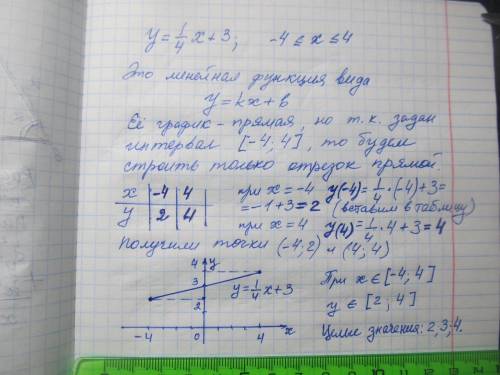 y = 1/4 x + 3;   -4 ≤ x ≤ 4
Это линейная функция вида
y = kx + b
Её график - прямая, но т.к. задан
интервал [-4; 4], то будем
строить только отрезок прямой.
x | -4 | 4
y | 2 | 4
при x = -4 y(-4) = 1/4 · (-4) + 3 =
= -1 + 3 = 2 (вставим в таблицу)
при x = 4 y(4) = 1/4 · 4 + 3 = 4
Получили точки (-4; 2) и (4; 4)
4 y
3
y = 1/4 x + 3
2
-4 0 4 x
При x ∈ [-4; 4]
y ∈ [2; 4]
Целые значения: 2, 3, 4.
1 2 3 4 5 6 7 8 9 10 11 12